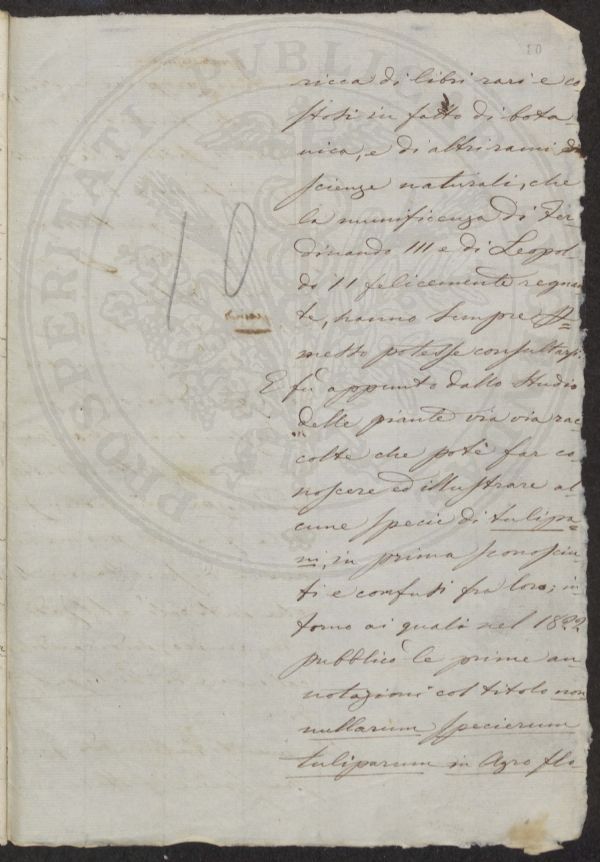 10
ricca di libri rari e co
stosi in fatto di bota-
nica, e di altri rami di
scienze naturali, che
la munificenza di Fer-
dinando III e di Leopol
do II felicemente regnan
te, hanno sempre
messo potesse consultarsi.
E fù appunto dallo studio
delle piante via via rac
colte che potè far co-
noscere ed illustrare al
cune specie di tulipa-
ni, in prima sconosciu
ti e confusi fra loro; in
torno ai quali nel 1822
pubblicò le prime an
notazioni col titolo non
nullarum specierum
tuliparum in Agro flo
10
PROSPERITATI PUBLICAE